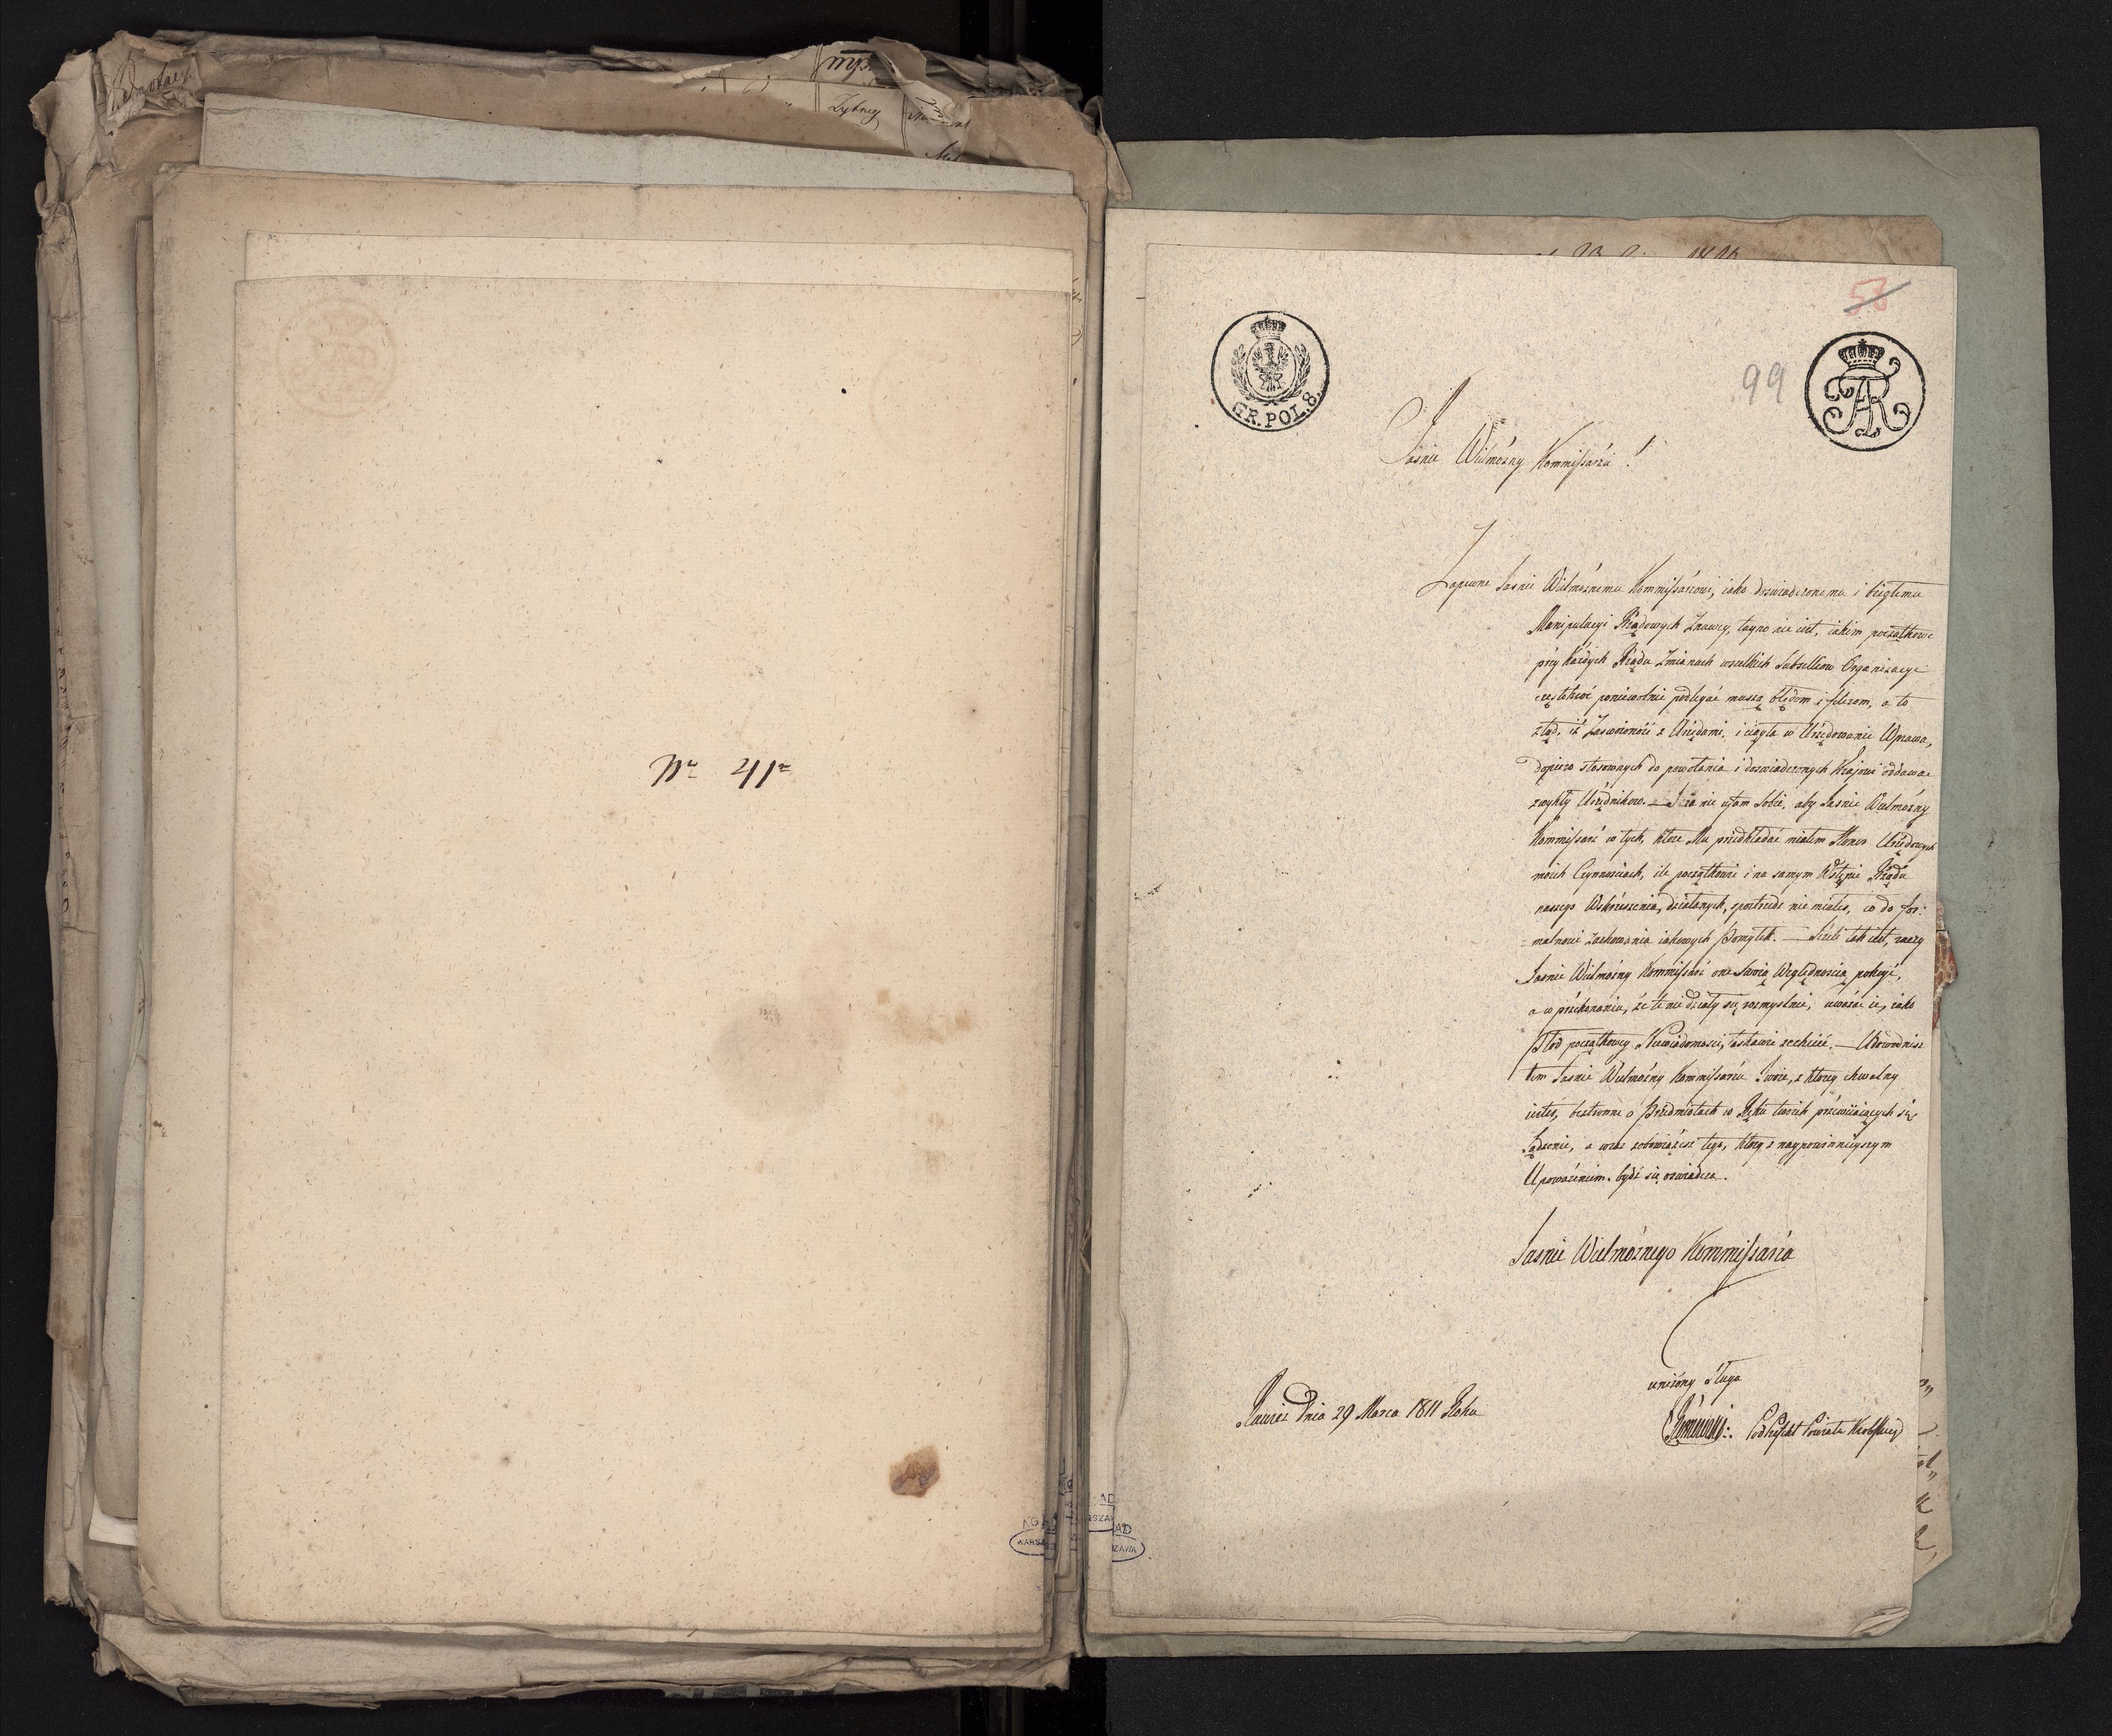 Nr 41
58
99
GR. POL. 8.
FAR
Jaśnie Wielmożny Kommissarzu!
Zapewne Jaśnie Wielmożnemu Kommissarzowi, iako doświadczonemu i biegłemu
Manipulacyi Rządowych Znawcy, tayno nie iest, iakim początkowe
przy każdych Rządu Zmianach wszelkich Subselliow Organizacye
częstokroć poniewolnie podlegać muszą błędom i felerom, a to
ztąd, iż Zaswoioność z Urzędami, i ciągła w Urzędowanie Wprawa,
dopiero stosownych do powołania i doswiadczonych Kraiowi oddawać
zwykły Urzędnikow. — I ia nie ufam Sobie, aby Jasnie Wielmożny
Kommissarz w tych, ktore Mu przedkładać miałem Honor Urzędowych
moich Czynnościach, ile początkowie i na samym Wstępie Rządu
naszego Wskrzeszenia, działanych, spostrzedz nie miałeś, co do for:
malnosci zachowania iakowych Pomyłek. — Jeżeli tak iest, raczy
Jasnie Wielmożny Kommissarz one Swoią Względnoscią pokryć,
a w przekonaniu, że te nie działy się rozmyslnie, uważać ie, iako
Płod początkowey Niewiadomosci, łaskawie zechcieć. — Udowodnisz
tem Jasnie Wielmożny Kommissarzu Swoie, z ktorey chwalny
iesteś, bestronne o Przedmiotach w Ręku twoich przewiiaiących się
Sądzenie, a wraz zobowiążesz tego, ktory z naypowinnieyszym
Upoważeniem bydź się oswiadcza.
Jasnie Wielmożnego Kommissarza
uniżony Sługa
Rawicz Dnia 29 Marca 1811 Roku
Podsędek Powiatu Krobskiego